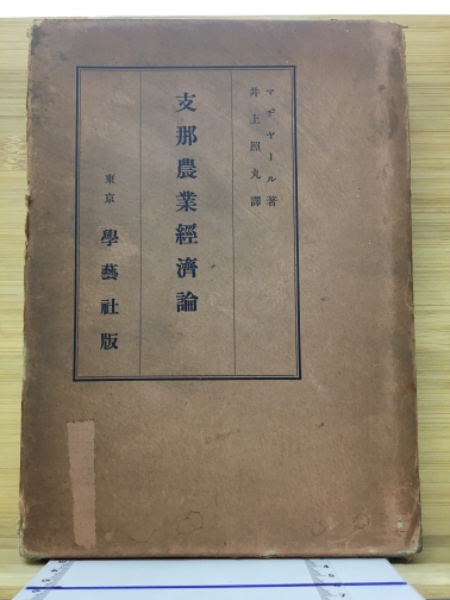 マヂャール著
井上照丸譯
支那農業經濟論
東京 學藝社版